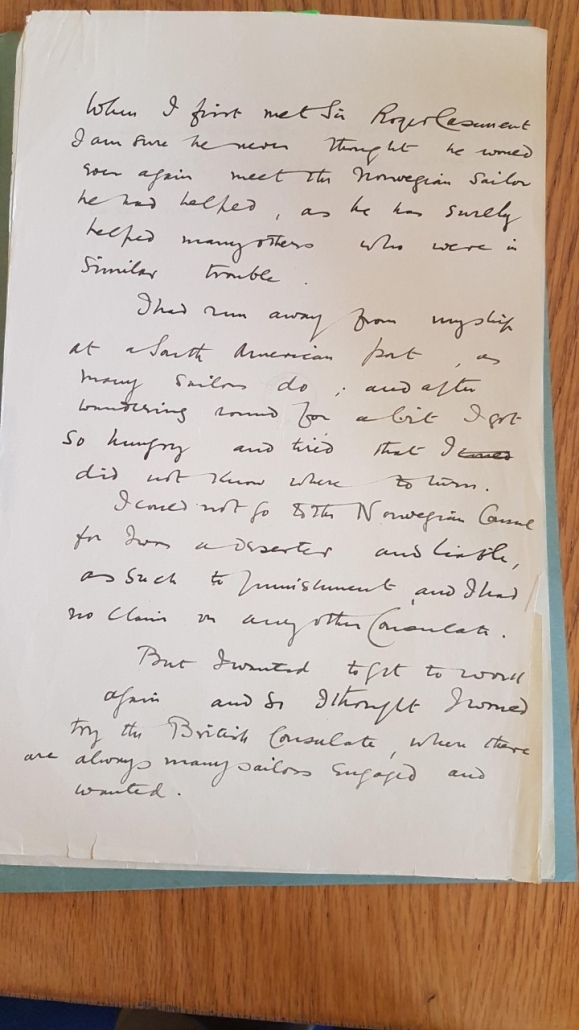 When I first met Sir Roger Casement
I am sure he never thought he would
ever again meet the Norwegian Sailor
he had helped, as he has surely
helped many others who were in
similar trouble.
I had run away from my ship
at a South American port, as
many sailors do; and after
wandering round for a bit I got
so hungry and tired that I could
did not know where to turn.
I could not go to the Norwegian Consul
for I was a deserter and liable,
as such to punishment, and I had
no claim on any other Consulate.
But I wanted to get to work
again and so I thought I would
try the British Consulate, where there
are always many sailors engaged and
wanted.